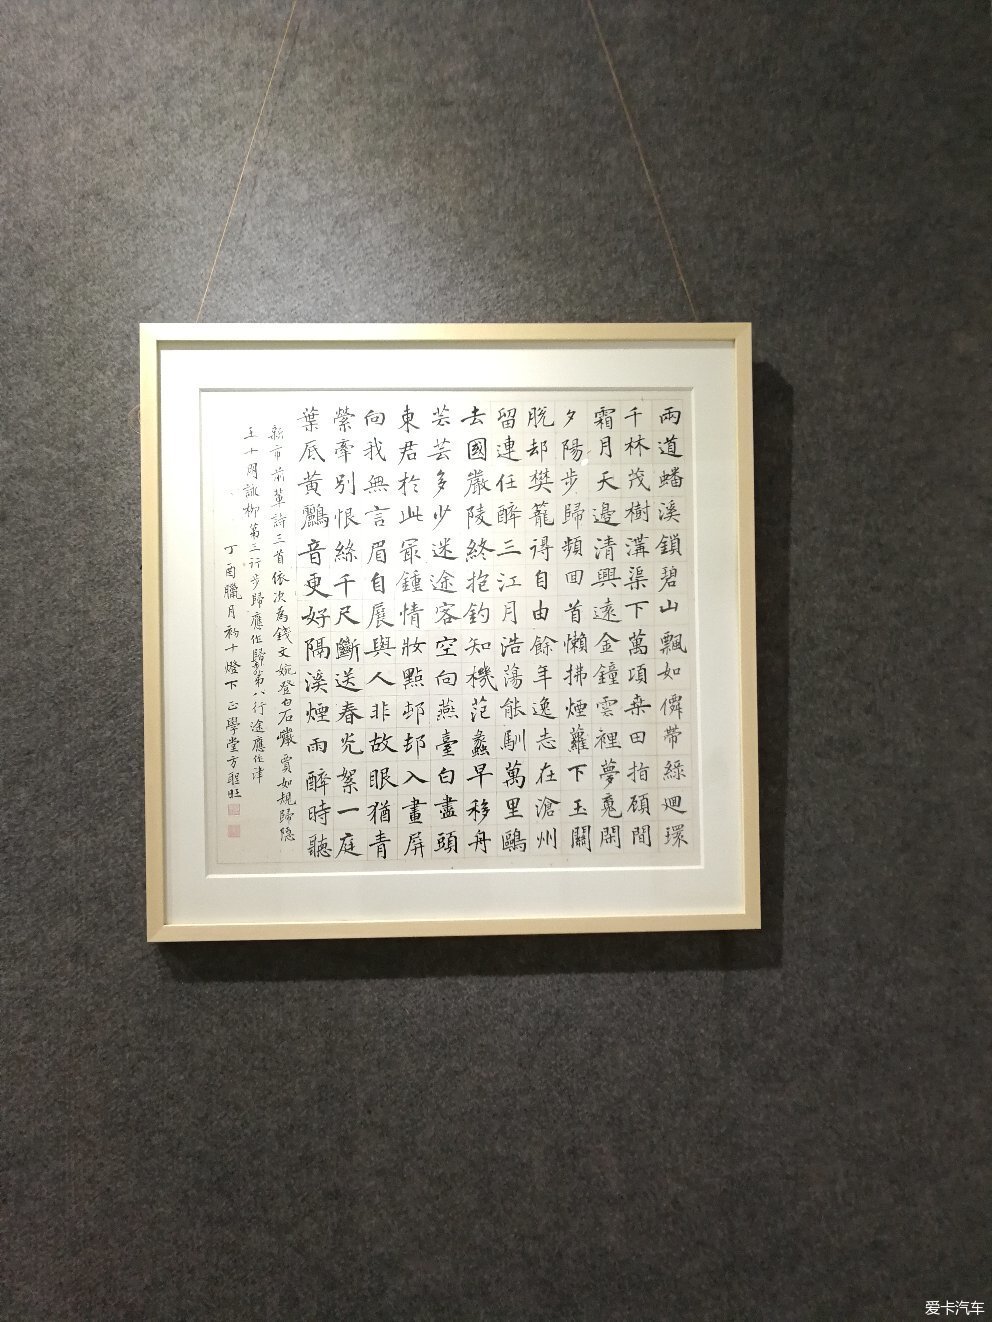 兩道蟠溪鎖碧山飄如僊帶綠迴環
千林茂樹溝渠下萬項桒田指顧間
霜月天邊清興遠金鐘雲裡夢魂閑
夕陽步歸頻回首懶拂煙蘿下玉關
脫却樊籠得自由餘年逸志在滄州
留連任醉三江月浩蕩能馴萬里鷗
去國嚴陵終抱釣知機范蠡早移舟
芸芸多少迷途客空向燕臺白盡頭
東君於此最鍾情妝點邨邨入畫屏
向我無言眉自展與人非故眼猶青
縈牽別恨絲千尺斷送春光絮一庭
葉底黃鸝音更好隔溪煙雨醉時聽
新市前輩詩三首依次為錢文婉登白石巖賈如規歸隱
王十同詠柳第三行步歸應作歸第八行途應作津
丁酉臘月初十燈下正學堂方胜旺
爱卡汽车